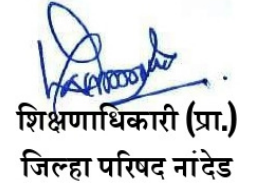 शिक्षणाधिकारी (प्रा.)
जिल्हा परिषद नांदेड